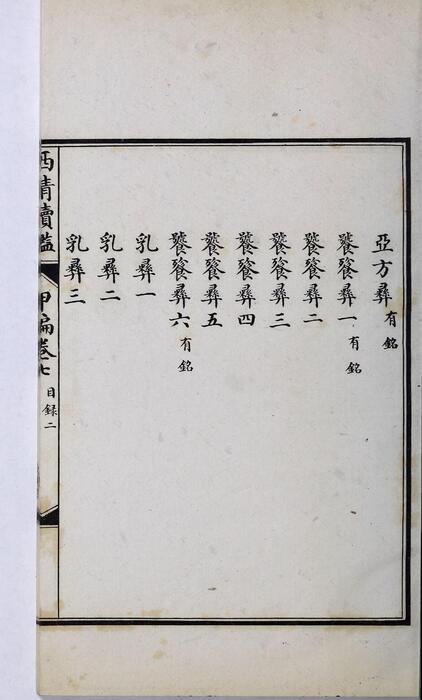 亞方彝有銘
饕餮彝一有銘
饕餮彝二
饕餮彝三
饕餮彝四
饕餮彝五
饕餮彝六有銘
乳彝一
乳彝二
乳彝三
西清續鑑 甲編卷七 目録二